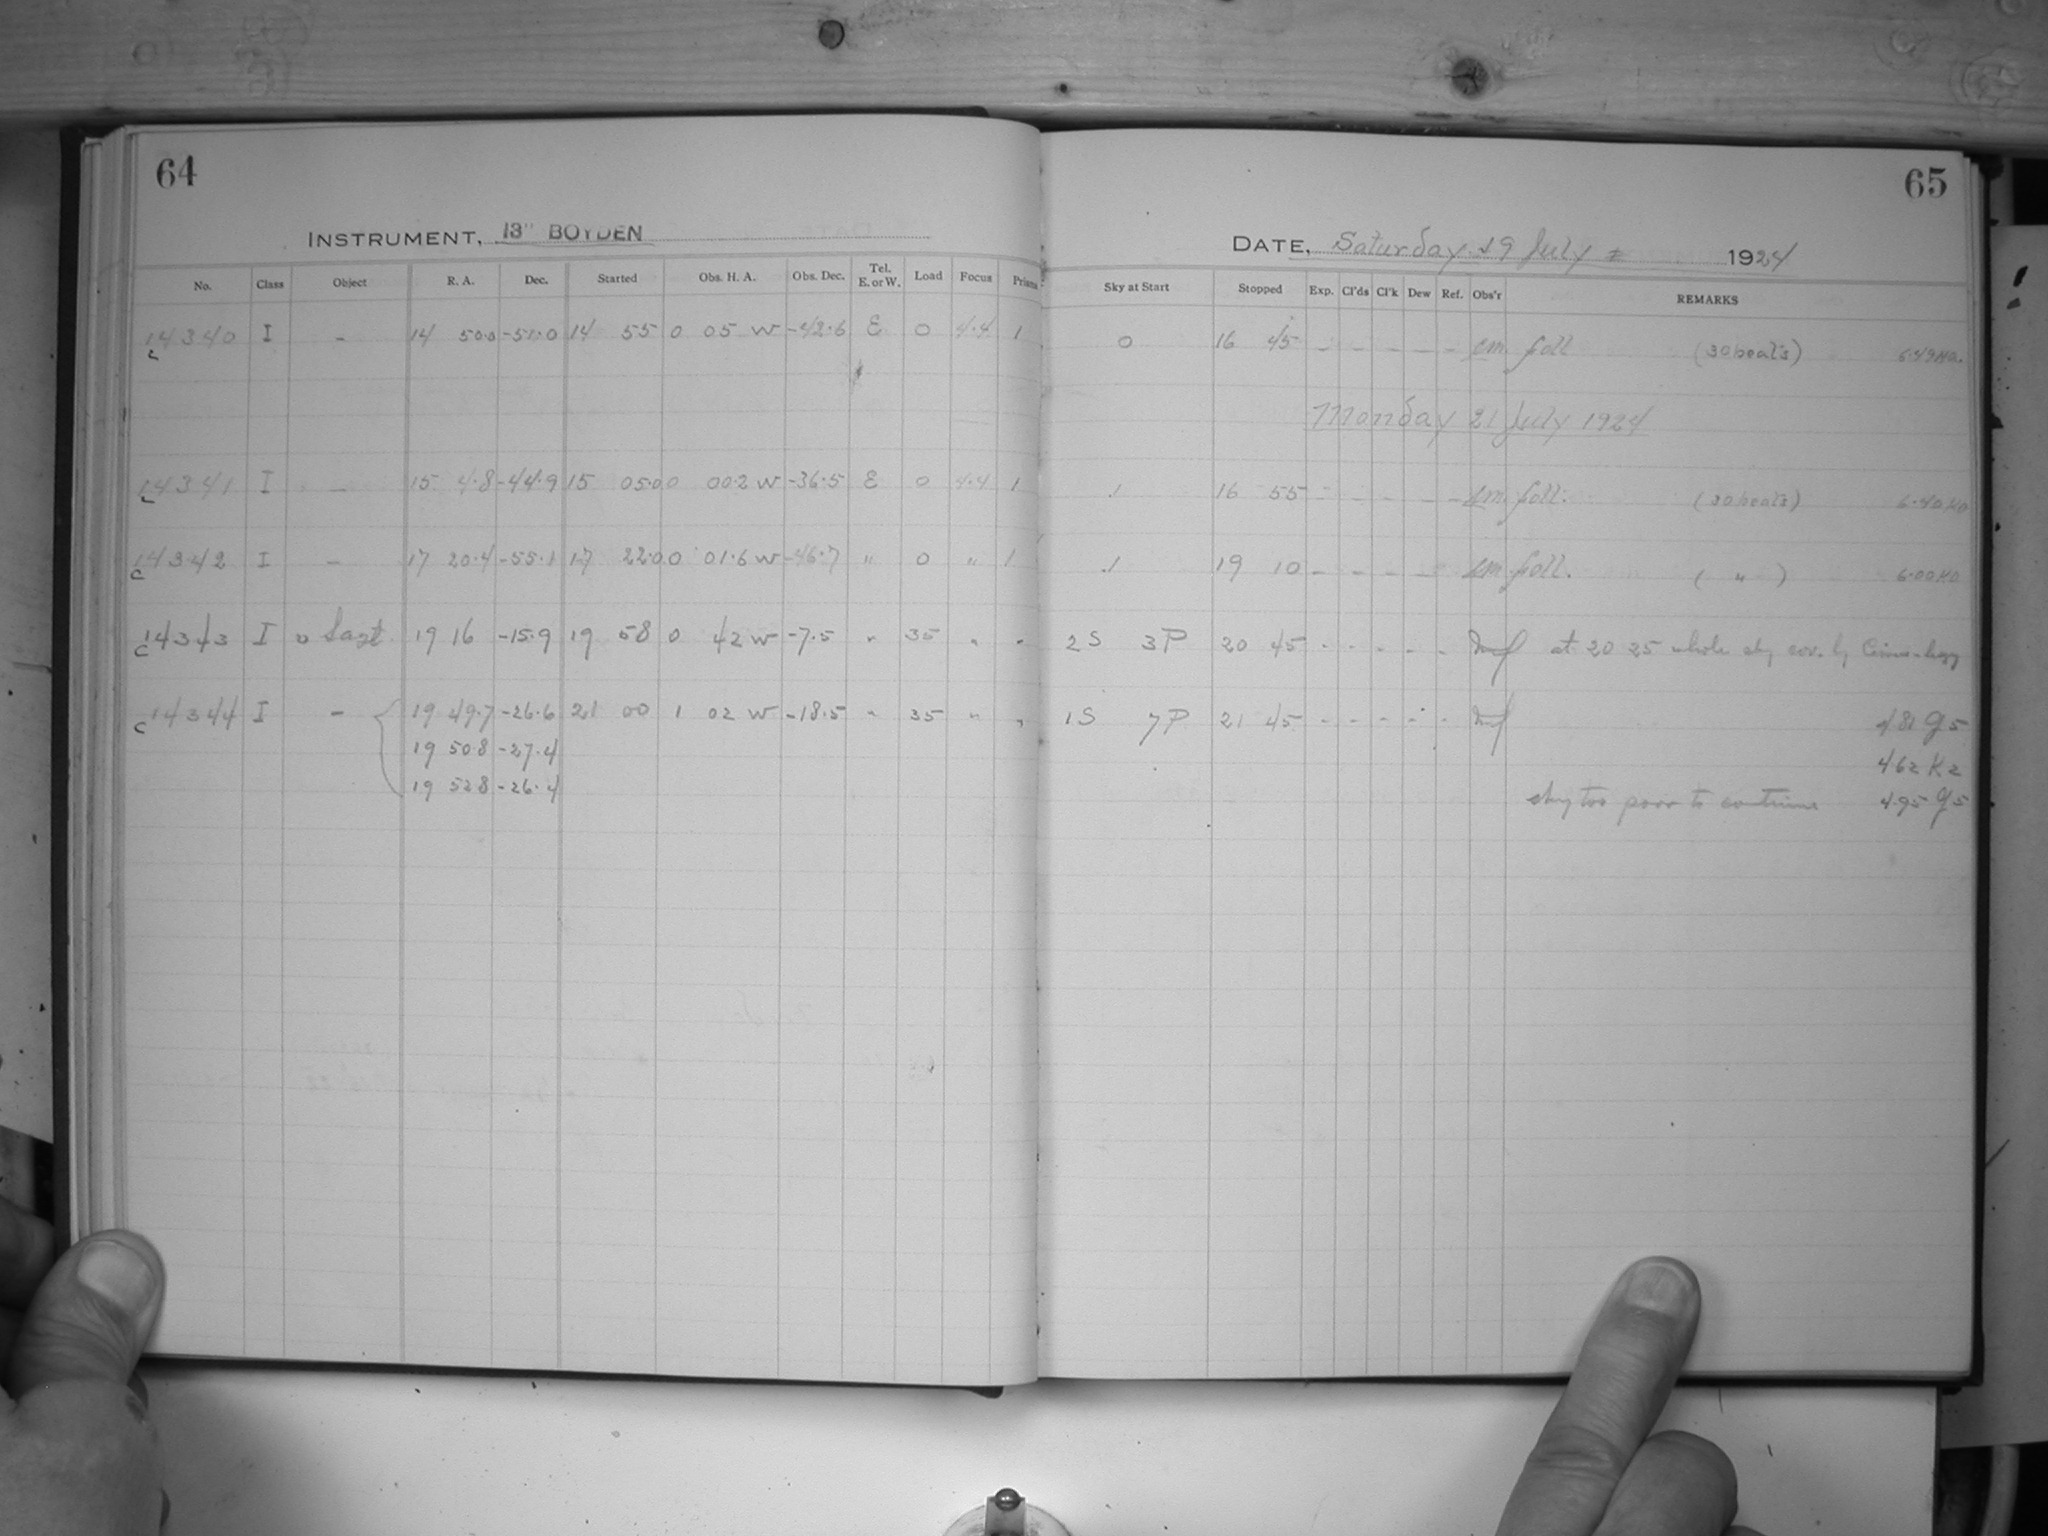 64
65
INSTRUMENT, 13" BOYDEN
DATE, Saturday 19 July 1924
No. Class Object R. A. Dec. Started Obs. H. A. Obs. Dec. Tel. E. or W. Load Focus Prisms Sky at Start Stopped Exp. Cl'ds Cl'k Dew Ref. Obs'r REMARKS
c14340 I - 14 50.0 -51.0 14 55 0 05 W -42.6 E 0 4.4 1 0 16 45 - - - - - em foll (30 beats)
Monday 21 July 1924
c14341 I - 15 4.8 -44.9 15 05.0 0 00.2 W -36.5 E 0 4.4 1 .1 16 55 - - - - - em foll. (30 beats)
c14342 I - 17 20.4 -55.1 17 22.0 0 01.6 W -46.7 " 0 " 1 .1 19 10 - - - - - em foll. ( " )
c14343 I υ Sagt 19 16 -15.9 19 58 0 42 W -7.5 " 35 " " 2S 3P 20 45 - - - - - at 20 25 whole sky cov. by
c14344 I - 19 49.7 -26.6 21 00 1 02 W -18.5 " 35 " " 1S 7P 21 45 - - - - - 4.81 G5
19 50.8 -27.4 4.62 K2
19 52.8 -26.4 sky too poor to continue 4.95 G5